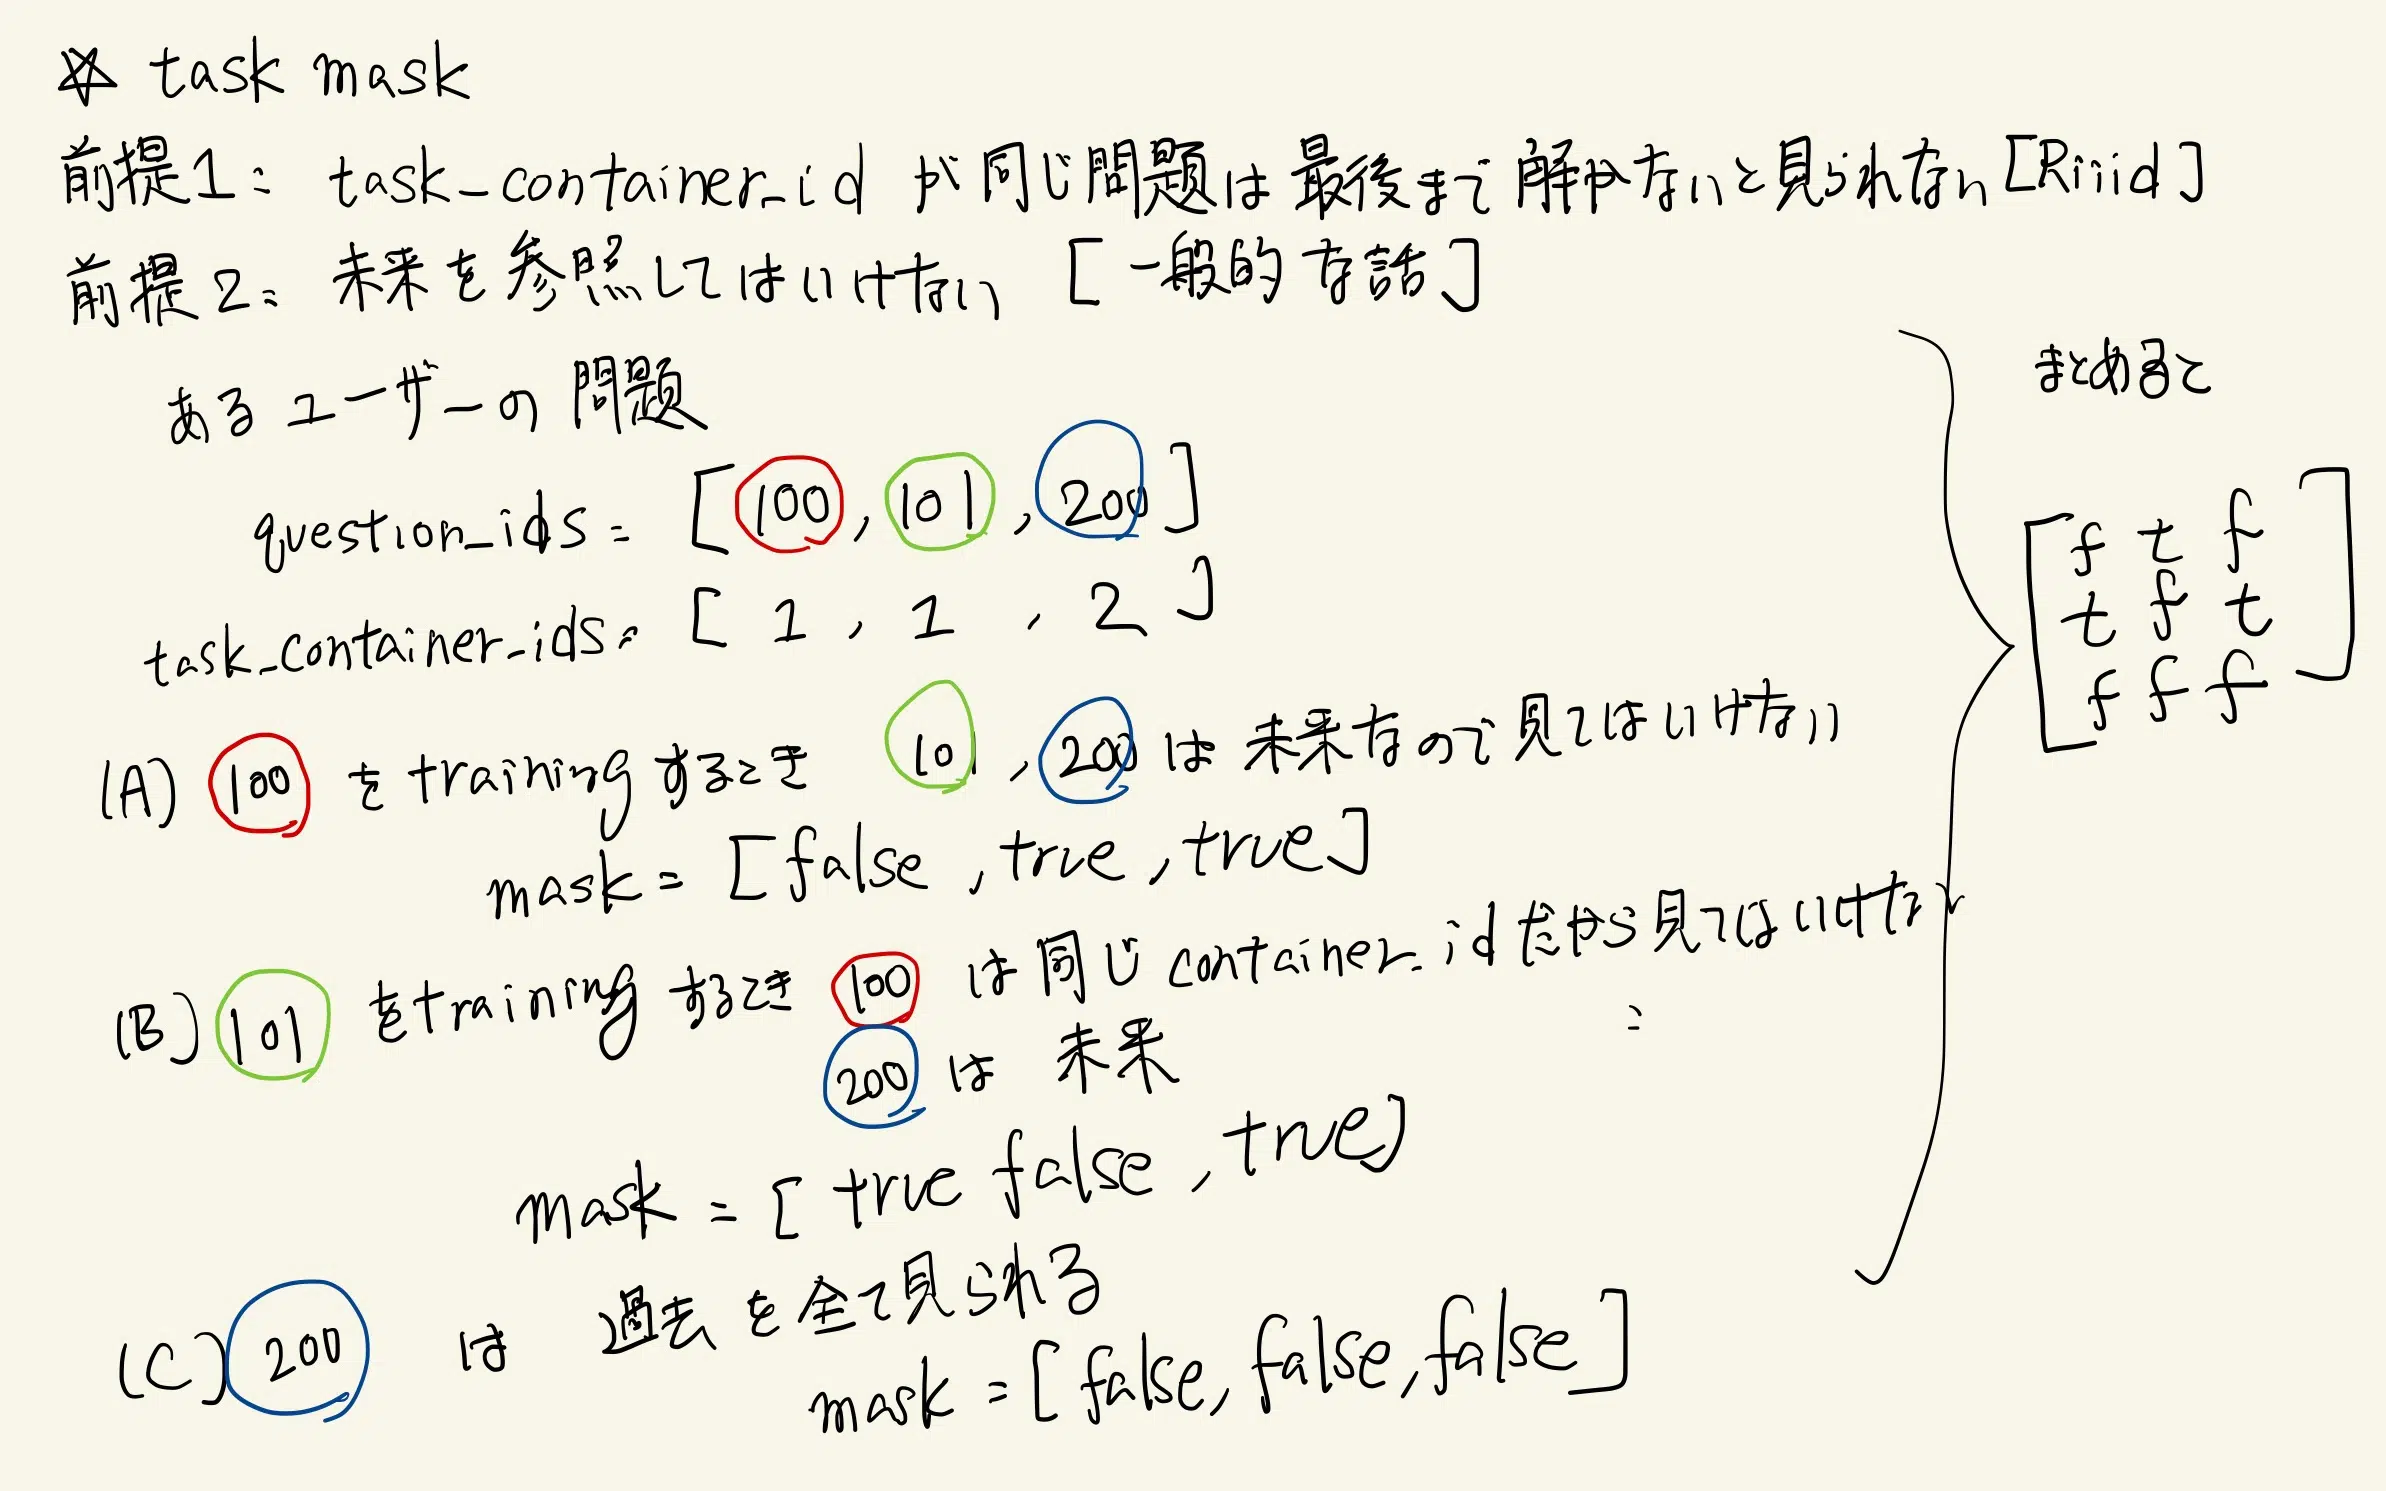 ☆ task mask
前提1: task_container_id が同じ問題は最後まで解かないと見られない [Riiid]
前提2: 未来を参照してはいけない [一般的な話]
あるユーザーの問題
question_ids = [100, 101, 200]
task_container_ids = [1, 1, 2]
(A) 100 をtrainingするとき 101, 200 は未来なので見てはいけない
mask = [false, true, true]
(B) 101 をtrainingするとき 100 は同じcontainer_idだから見てはいけない
200 は 未来
mask = [true false, true]
(C) 200 は 過去を全て見られる
mask = [false, false, false]
まとめると
[f t f
t f t
f f f]